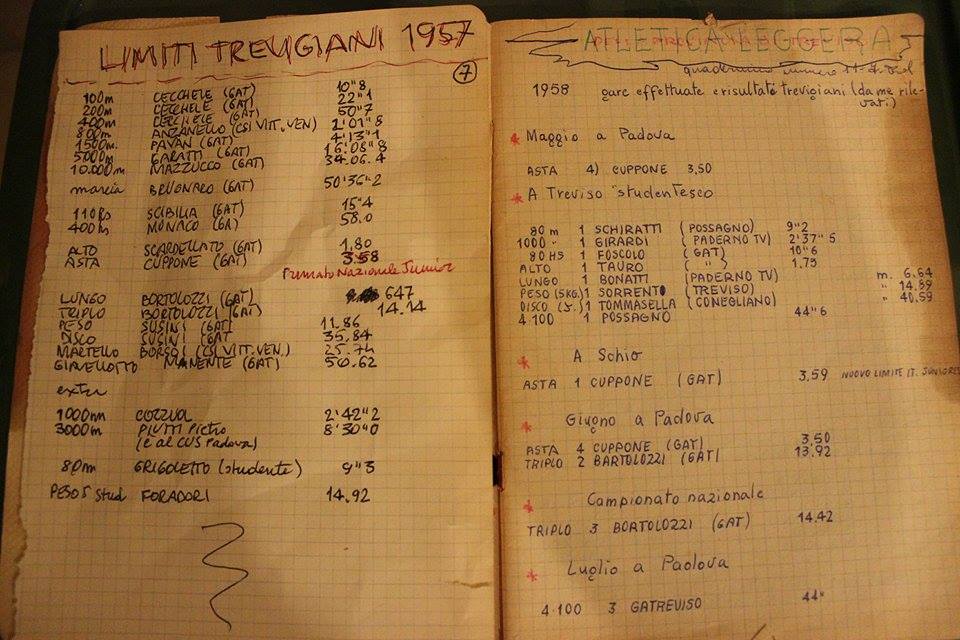 LIMITI TREVIGIANI 1957
7
100m CECCHELE (GAT) 10"8
200m CECHELE (GAT) 22"1
400m CERCHELE (GAT) 50"7
800m ANZANELLO (CSI VITT. VEN) 2'01"8
1500m. PAVAN (GAT) 4'13"1
5000m GARATTI (GAT) 16'08"8
10.000m MAZZUCCO (GAT) 34.06.4
marcia BRUGNARO (GAT) 50'36"2
110hs SCIBILIA (GAT) 15"4
400hs MONACO (GA) 58.0
ALTO SCARDELLATO (GAT) 1,80
ASTA CUPPONE (GAT) 3.58
Primato Nazionale Junior
LUNGO BORTOLOZZI (GAT) 647
TRIPLO BORTOLOZZI (GAT) 14.14
PESO SUSINI (GAT) 11.86
DISCO SUSINI (GAT 35,84
MARTELLO BORSOI (CSI VITT. VEN.) 25.74
GIAVELLOTTO MANENTE (GAT) 50.62
extra
1000m COZZUOL 2'42"2
3000m PIUTTI Pietro 8'30"0
(è al CUS Padova)
80m GRIGOLETTO (studente) 9"3
PESO 5 Stud FORADORI 14.92
ATLETICA LEGGERA
quadernino numero
1958 gare effettuate e risultati trevigiani (da me rile-
vati.)
* Maggio a Padova
ASTA 4) CUPPONE 3,50
* A Treviso "studentesco
80 m 1 SCHIRATTI (POSSAGNO) 9"2
1000 " 1 GIRARDI (PADERNO TV) 2'37"5
80 HS 1 FOSCOLO (GAT) 10"6
ALTO 1 TAURO ( " ) 1.75
LUNGO 1 BONATTI (PADERNO TV) m. 6.64
PESO (5KG.) 1 SORRENTO (TREVISO) " 14.89
DISCO (J.) 1 TOMMASELLA (CONEGLIANO) " 40.59
4.100 1 POSSAGNO 44"6
* A Schio
ASTA 1 CUPPONE (GAT) 3,59 NUOVO LIMITE IT. JUNIORES
* Giugno a Padova
ASTA 4 CUPPONE (GAT) 3,50
TRIPLO 2 BARTOLOZZI (GAT) 13.92
* Campionato nazionale
TRIPLO 3 BORTOLOZZI (GAT) 14.42
* Luglio a Padova
4.100 3 GATREVISO 44"